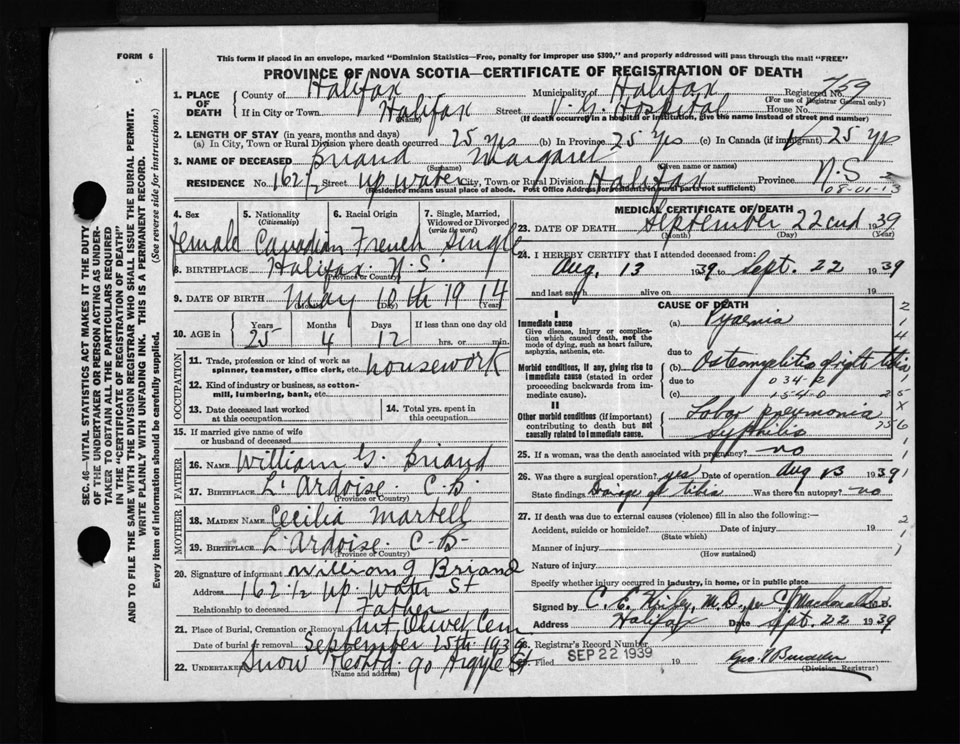 FORM 6
This form if placed in an envelope, marked "Dominion Statistics—Free, penalty for improper use $300," and properly addressed will pass through the mail "FREE"
PROVINCE OF NOVA SCOTIA—CERTIFICATE OF REGISTRATION OF DEATH
SEC. 46—VITAL STATISTICS ACT MAKES IT THE DUTY
OF THE UNDERTAKER OR PERSON ACTING AS UNDER-
TAKER TO OBTAIN ALL THE PARTICULARS REQUIRED
IN THE "CERTIFICATE OF REGISTRATION OF DEATH"
AND TO FILE THE SAME WITH THE DIVISION REGISTRAR WHO SHALL ISSUE THE BURIAL PERMIT.
WRITE PLAINLY WITH UNFADING INK. THIS IS A PERMANENT RECORD.
Every item of information should be carefully supplied. (See reverse side for instructions.)
1. PLACE OF DEATH County of Halifax Municipality of Halifax Registered No. 759
(For use of Registrar General only)
If in City or Town Halifax Street V.G. Hospital House No.
(Name) (If death occurred in a hospital or institution, give the name instead of street and number)
2. LENGTH OF STAY (in years, months and days)
(a) In City, Town or Rural Division where death occurred 25 yrs (b) In Province 25 yrs (c) In Canada (if immigrant) 25 yrs
3. NAME OF DECEASED Briand Margaret
(Surname) (Given name or names)
RESIDENCE No. 162½ Street up water City, Town or Rural Division Halifax Province N.S
(Residence means usual place of abode. Post Office Address for residents in rural parts not sufficient) 08-01-13
4. Sex female
5. Nationality (Citizenship) Canadian
6. Racial Origin French
7. Single, Married, Widowed or Divorced (write the word) Single
8. BIRTHPLACE Halifax. N.S.
(Province or Country)
9. DATE OF BIRTH May 10th 1914
(Year)
10. AGE in Years 25 Months 4 Days 12 If less than one day old hrs. or min.
OCCUPATION
11. Trade, profession or kind of work as spinner, teamster, office clerk, etc. housework
12. Kind of industry or business, as cotton-mill, lumbering, bank, etc.
13. Date deceased last worked at this occupation
14. Total yrs. spent in this occupation
15. If married give name of wife or husband of deceased
FATHER
16. Name William G. Briand
17. Birthplace L'Ardoise. C.B.
(Province or Country)
MOTHER
18. Maiden Name Cecilia Martell
19. Birthplace L'Ardoise. C-B-
(Province or Country)
20. Signature of informant William G Briand
Address 162½ up. Water St
Relationship to deceased Father
21. Place of Burial, Cremation or Removal Mt Olivet Cem
Date of burial or removal September 25th 1939
22. Undertaker Snow 90 Argyle St
(Name and address)
MEDICAL CERTIFICATE OF DEATH
23. DATE OF DEATH September 22nd 1939
(Month) (Day) (Year)
24. I HEREBY CERTIFY that I attended deceased from:
Aug. 13 1939 to Sept. 22 1939
and last saw h alive on 19
CAUSE OF DEATH
I
Immediate cause
Give disease, injury or complication which caused death, not the mode of dying, such as heart failure, asphyxia, asthenia, etc.
(a) Pyaemia
due to
Morbid conditions, if any, giving rise to immediate cause (stated in order proceeding backwards from immediate cause).
(b) Osteomyelitis of right tibia
due to 034-2
(c) 154-0
II
Other morbid conditions (if important) contributing to death but not causally related to immediate cause.
Lobar pneumonia
Syphilis
25. If a woman, was the death associated with pregnancy? no
26. Was there a surgical operation? yes Date of operation Aug 13 1939
State findings of tibia Was there an autopsy? no
27. If death was due to external causes (violence) fill in also the following:—
Accident, suicide or homicide? Date of injury 19
(State which)
Manner of injury
(How sustained)
Nature of injury
Specify whether injury occurred in industry, in home, or in public place
Signed by C. E. M.D. per C. Macdonald M.D.
Address Halifax Date Sept. 22 1939
28. Registrar's Record Number
Filed SEP 22 1939 19
(Division Registrar)